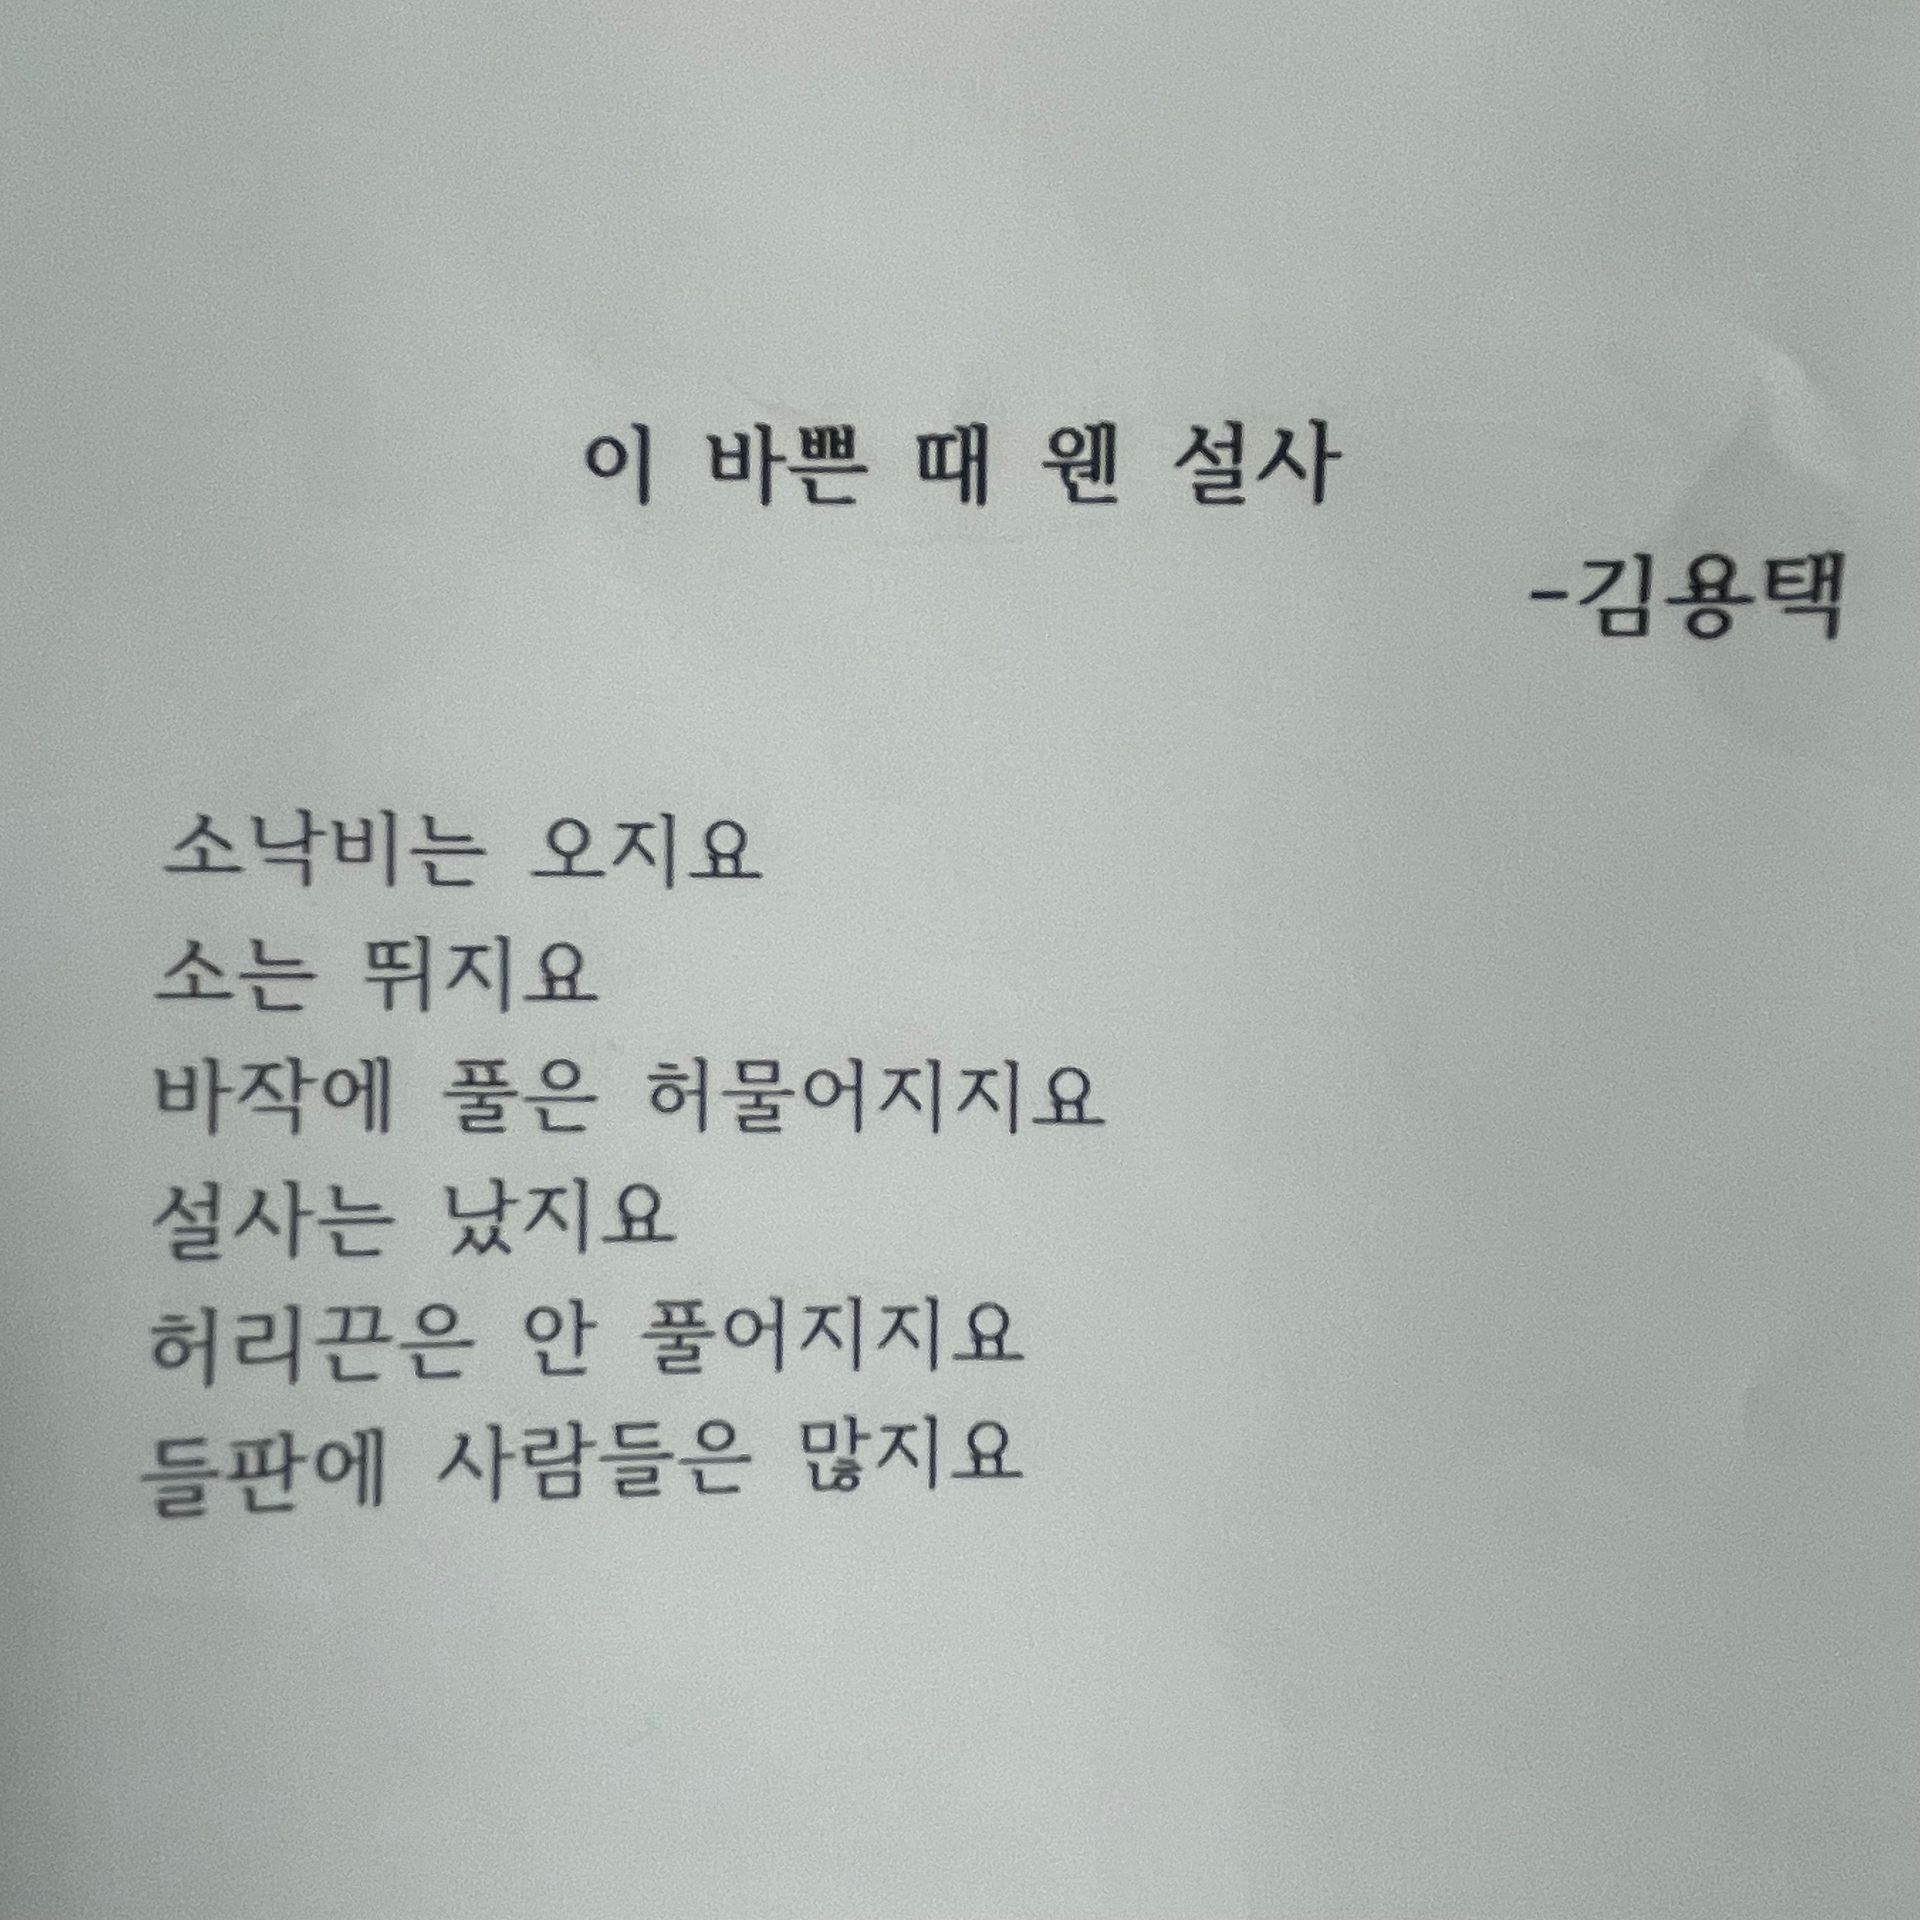 이 바쁜 때 웬 설사
-김용택
소낙비는 오지요
소는 뛰지요
바작에 풀은 허물어지지요
설사는 났지요
허리끈은 안 풀어지지요
들판에 사람들은 많지요